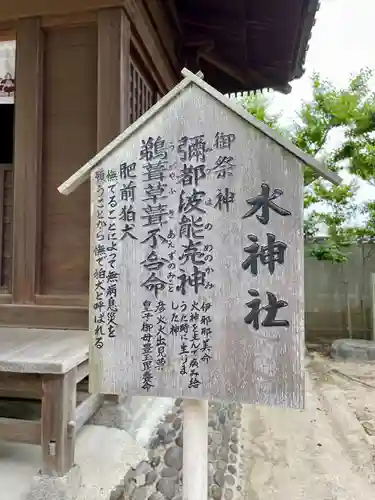 水神社
御祭神
彌都波能売神
みづはのめのかみ
伊邪那美命
火神を生んで病み給
うた時に生り
した神
鵜葺草葺不合命
うがやふきあえずのみこと
彦火火出見尊
皇子御母豊玉姫
肥前狛犬
撫でることによって無病息災を
願うことから撫で狛犬と呼ばれる